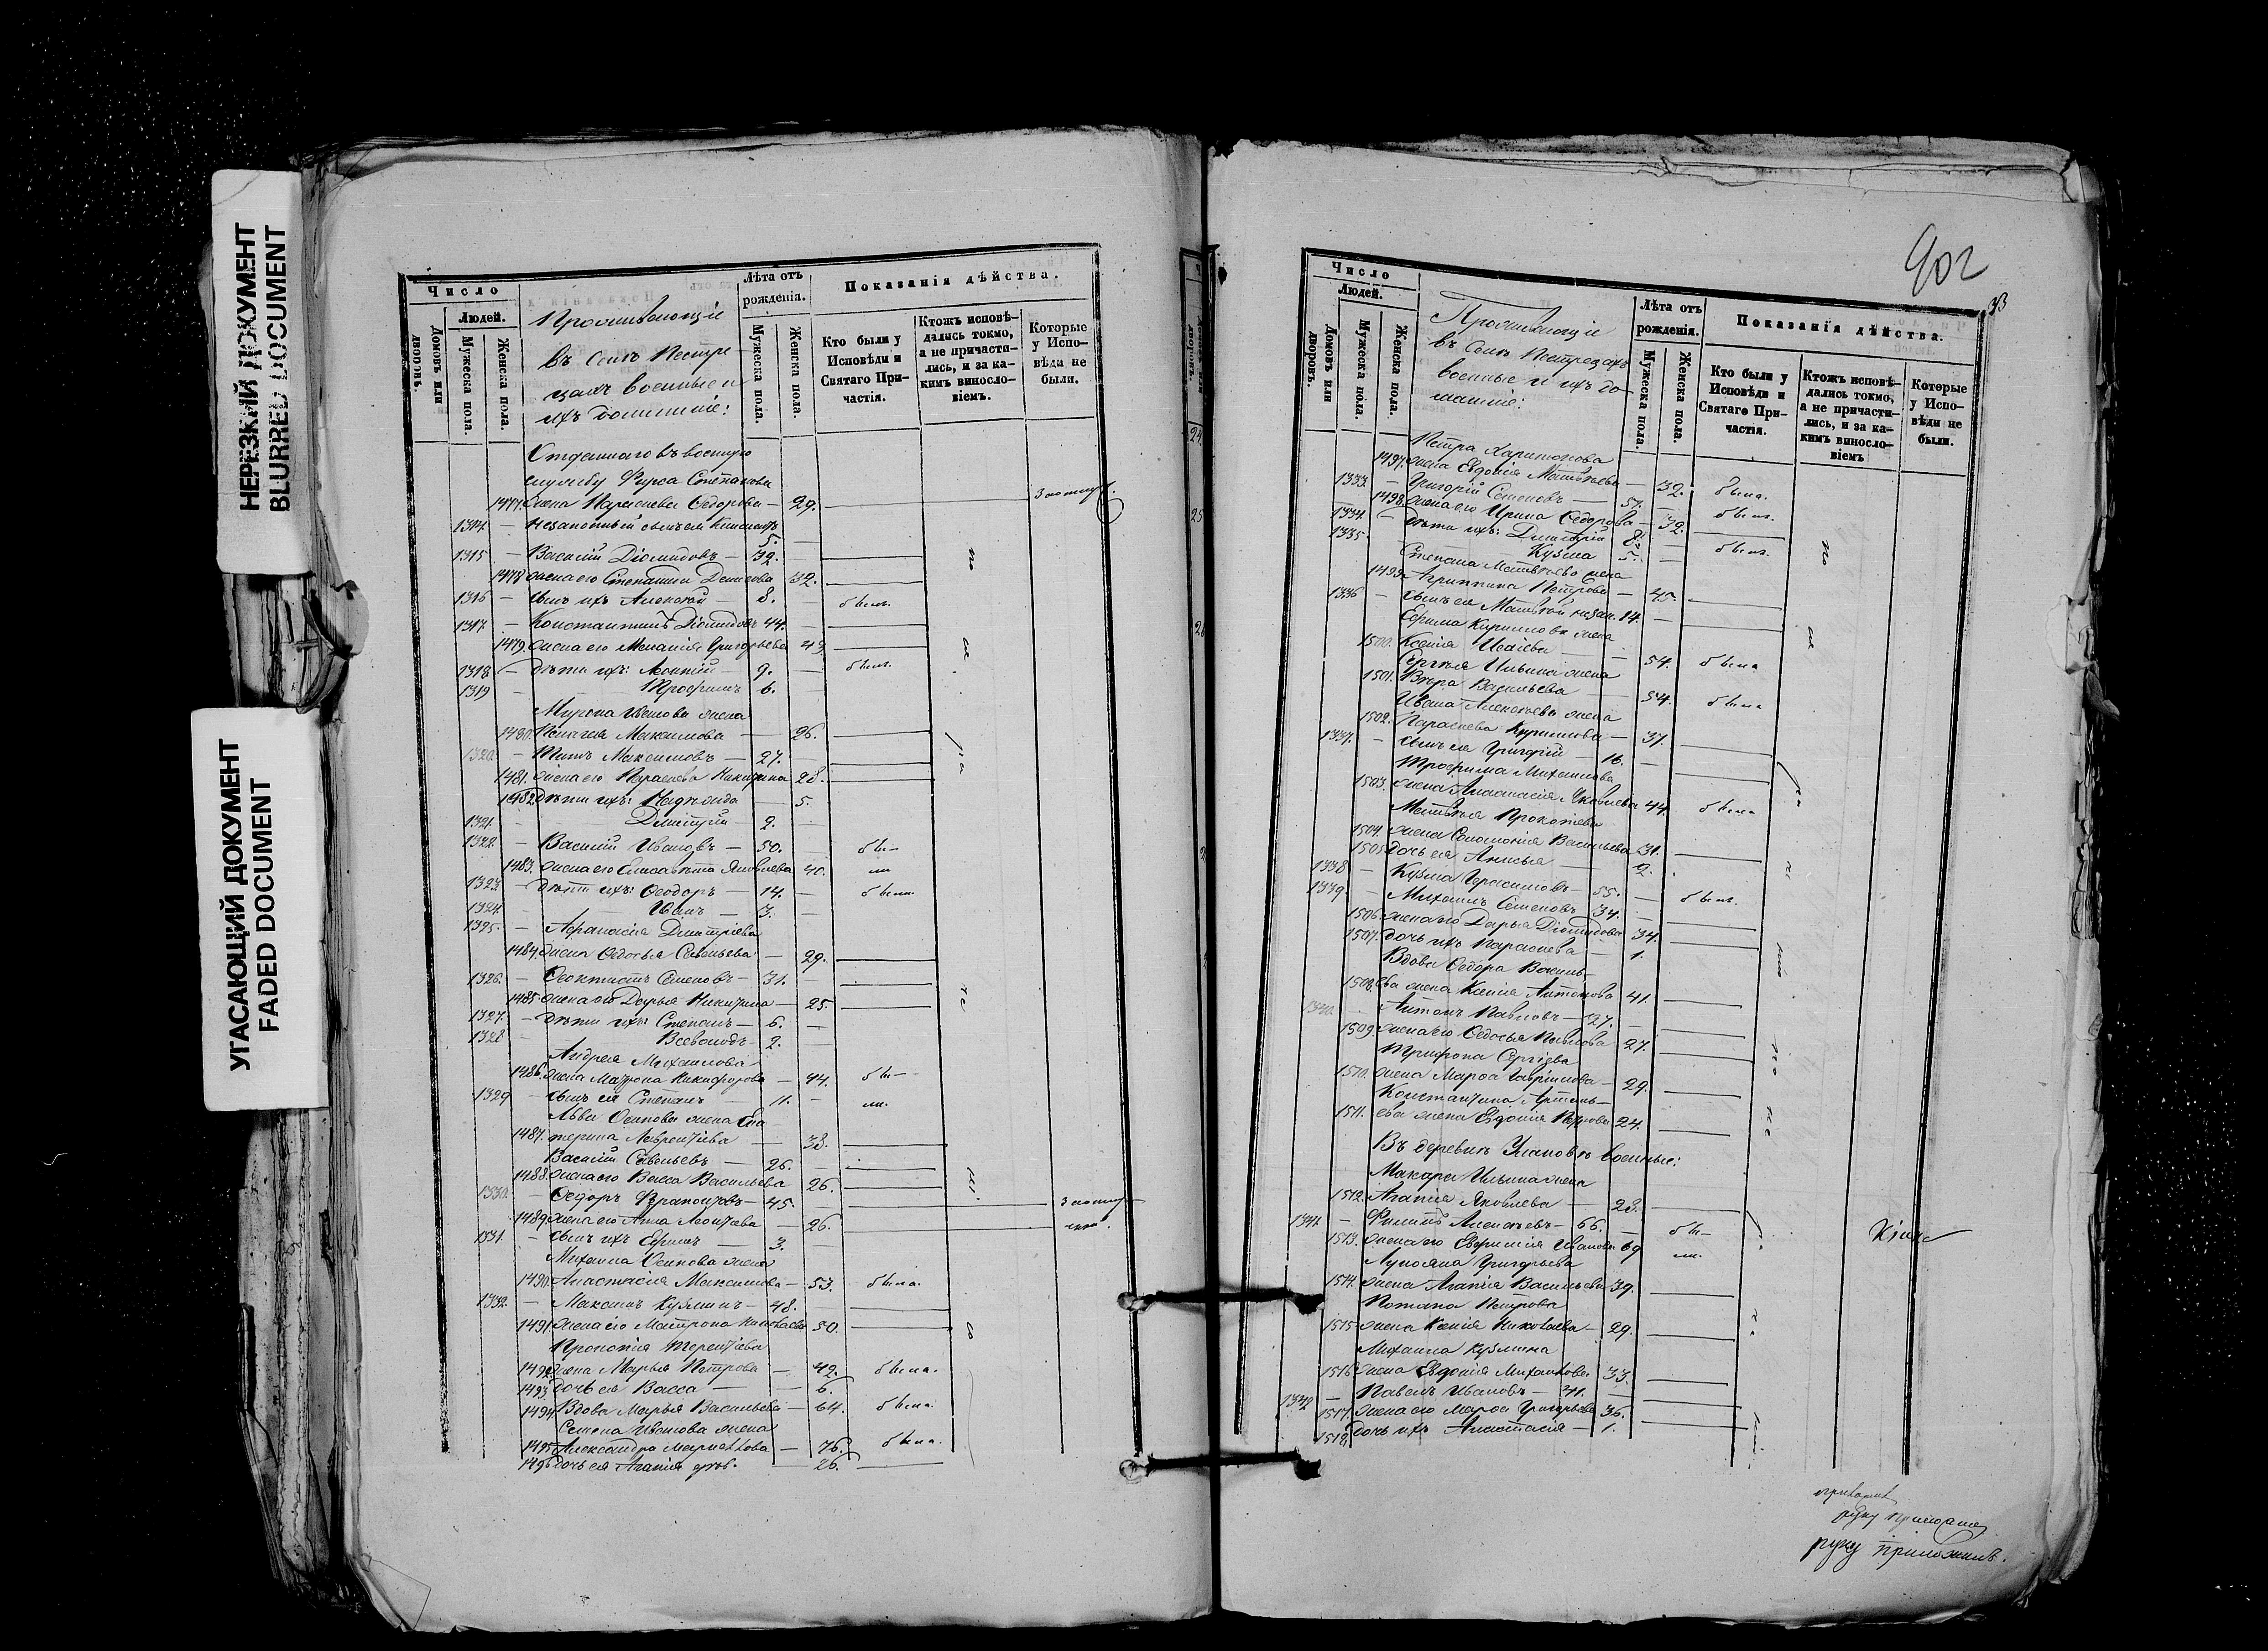 НЕРЕЗКИЙ ДОКУМЕНТ
BLURRED DOCUMENT
УГАСАЮЩИЙ ДОКУМЕНТ
FADED DOCUMENT
Число
Домовъ или дворовъ.
Людей.
Мужеска пола.
Женска пола.
Проживающіе
въ селѣ Пестре-
цахъ военные и
ихъ домашніе:
Лѣта отъ рожденія.
Мужеска пола.
Женска пола.
Показанія дѣйства.
Кто были у Исповѣди и Святаго При-частія.
Ктожъ исповѣ-дались токмо, а не причасти-лись, и за ка-кимъ виносло-віемъ.
Которые у Испо-вѣди не были.
Отданнаго въ военную
службу Фирса Степанова
1477. жена Параскева Ѳедорова — 29.
1314. — незаконный сынъ ея
5.
1315 — Василій Діомидовъ — 32.
1478 жена его Степанида Денисова 32.
1316 — сынъ ихъ Алексѣй — 8. былъ.
1317 — Константинъ Діомидовъ 44.
1479. жена его Меланія Григорьева 43.
1318 — дѣти ихъ: Леонтій — 9. былъ.
1319 — Трофимъ 6.
Мирона Иванова жена
1480. Пелагея Максимова — 26.
1320. — Титъ Максимовъ — 27.
1481. жена его Параскева Никитина 28.
1482 дѣти ихъ: Надежда — 5.
1321. — Димитрій — 2.
1322. — Василій Ивановъ — 50. бы—
1483. жена его Елисавета Яковлева 40. ли
1323. — дѣти ихъ: Ѳеодоръ — 14. были.
1324. — Иванъ — 3.
1325. — Аѳанасія Дмитріева
1484. жена Ѳедосья Савельева — 29.
1326. — Ѳеоктистъ Семеновъ — 31.
1485. жена его Дарья Никитина — 25.
1327. — дѣти ихъ: Степанъ — 6.
1328 — Всеволодъ — 2.
Андрея Михайлова
1486. жена Матрона Никифорова — 44. бы—
1329 — сынъ ея Степанъ — 11. ли.
Льва Осипова жена Ека
1487. терина Лаврентіева — 38.
Василій Савельевъ — 26.
1488. жена его Васса Васильева 26.
1330. — Ѳедоръ — 45.
1489. жена его Анна Леонтьева — 26.
1331. — сынъ ихъ Ефимъ — 3.
Михаила Осипова жена
1490. Анастасія Максимова — 53. была.
1332. — Максимъ Кузминъ — 48.
1491. жена его Матрона Николаева 50.
Прокопія Терентіева
1492 жена Марья Петрова — 42. была.
1493. дочь ея Васса — 6.
1494 Вдова Марья Васильева — 64. была.
Семена Иванова жена
1495. Александра — 76. была.
1496 дочь ея Агапія — 26.
902
33
Число
Домовъ или дворовъ.
Людей.
Мужеска пола.
Женска пола.
Проживающіе
въ селѣ Пестрецахъ
военные и ихъ до-
машніе:
Лѣта отъ рожденія.
Мужеска пола.
Женска пола.
Показанія дѣйства.
Кто были у Исповѣди и Святаго При-частія.
Ктожъ исповѣ-дались токмо, а не причасти-лись, и за ка-кимъ виносло-віемъ
Которые у Испо-вѣди не были.
Петра Харитонова
1497. жена Евдокія Матвѣева — 32. была.
1333. — Григорій Семеновъ — 57.
1498. жена его Ирина Ѳедорова — 32. былъ.
1334. — дѣти ихъ: Димитрій 8.
1335. Кузма 5.
Степана Матвѣева жена
1499. Агриппина Петрова — 45.
1336 — сынъ ея Матвѣй незак. 14.
Ефима Кириллова жена
1500. Ксенія Исаіева — 54. была
Сергѣя Ильина жена
1501. Вѣра Васильева — 54. была
Ивана Алексѣева жена
1502. Параскева Кириллова — 37.
1337. — сынъ ея Григорій — 16.
Трофима Михайлова
1503. жена Анастасія Яковлева 44. была
Матвѣя Прокопіева
1504. жена Соломонія Васильева 31.
1505 дочь ея Анисья — 2.
1338 — Кузма Герасимовъ — 55. былъ.
1339. — Михаилъ Семеновъ 34.
1506. жена его Дарья Діомидова 34.
1507. дочь ихъ Параскева — 1.
Вдова Ѳедора Василь-
1508. ева жена Ксенія Антонова 41.
1340. Антонъ Павловъ — 27.
1509. жена его Ѳедосья Павлова 27.
Трифона Сергіева
1510. жена Марѳа Гавриилова — 29.
Константина Артемь-
1511. ева жена Евдокія Петрова 24.
Въ деревнѣ Улановѣ военные:
Макара Ильина жена
1512. Агапія Яковлева — 28.
1341. — Филипъ Алексѣевъ — 66. бы—
1513. жена его Евфимія Иванова 69 ли.
Лукояна Григорьева
1514. жена Агапія Васильева 39.
Потапа Петрова
1515. жена Ксенія Николаева — 29.
Михаила Кузмина
1516. жена Евдокія Михайлова 33.
1342 — Павелъ Ивановъ — 41.
1517. жена его Марѳа Григорьева 36.
1518. дочь ихъ Анастасія — 1.
руку приложилъ.